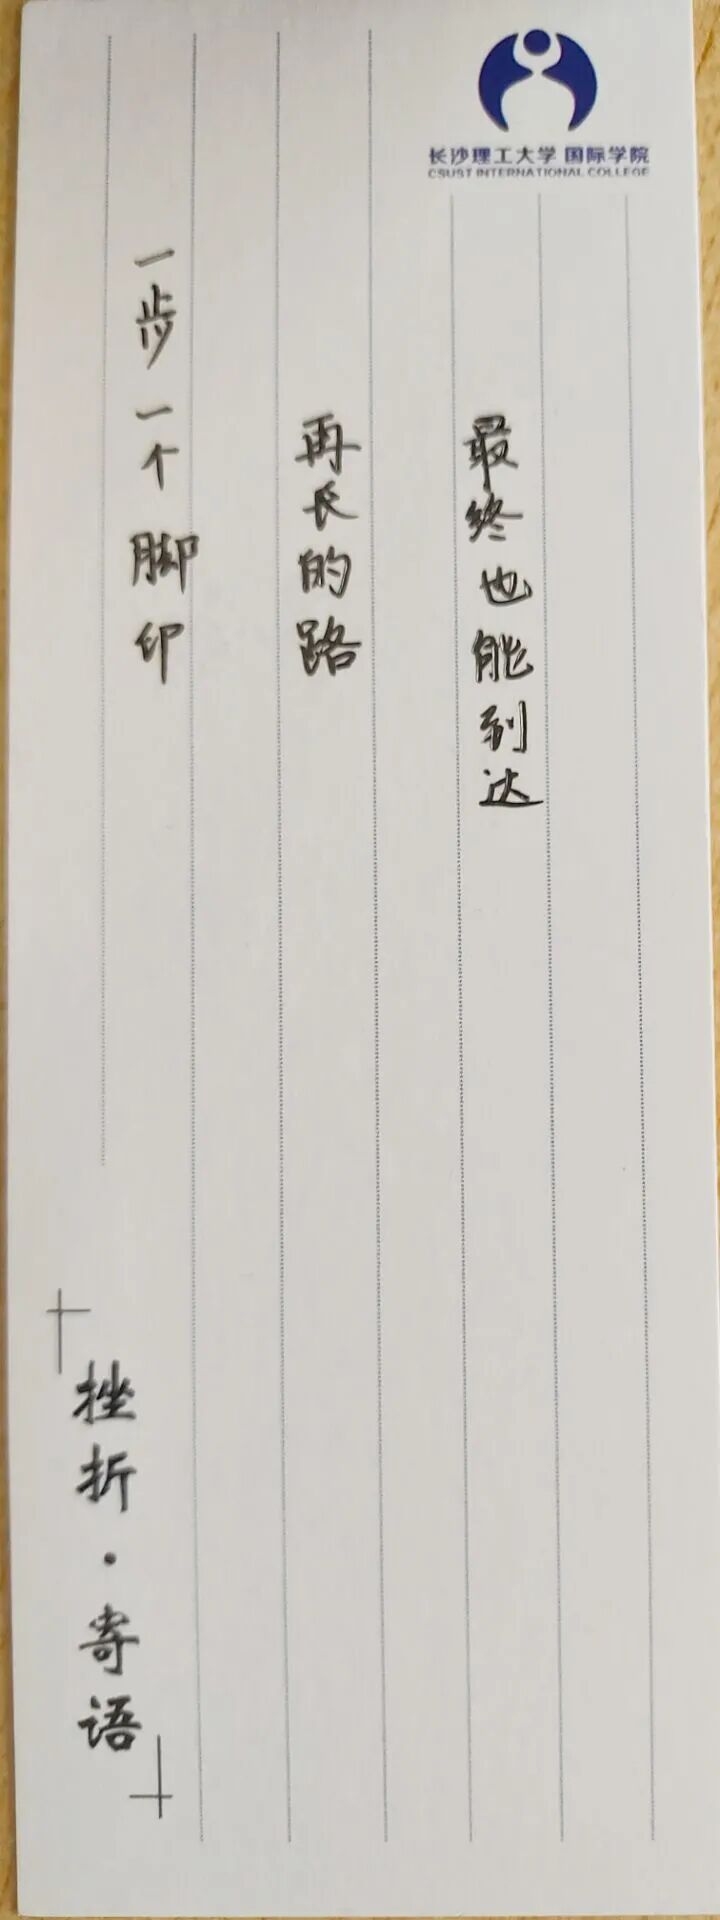 长沙理工大学 国际学院
CSUST INTERNATIONAL COLLEGE
一步一个脚印
再长的路
最终也能到达
挫折·寄语